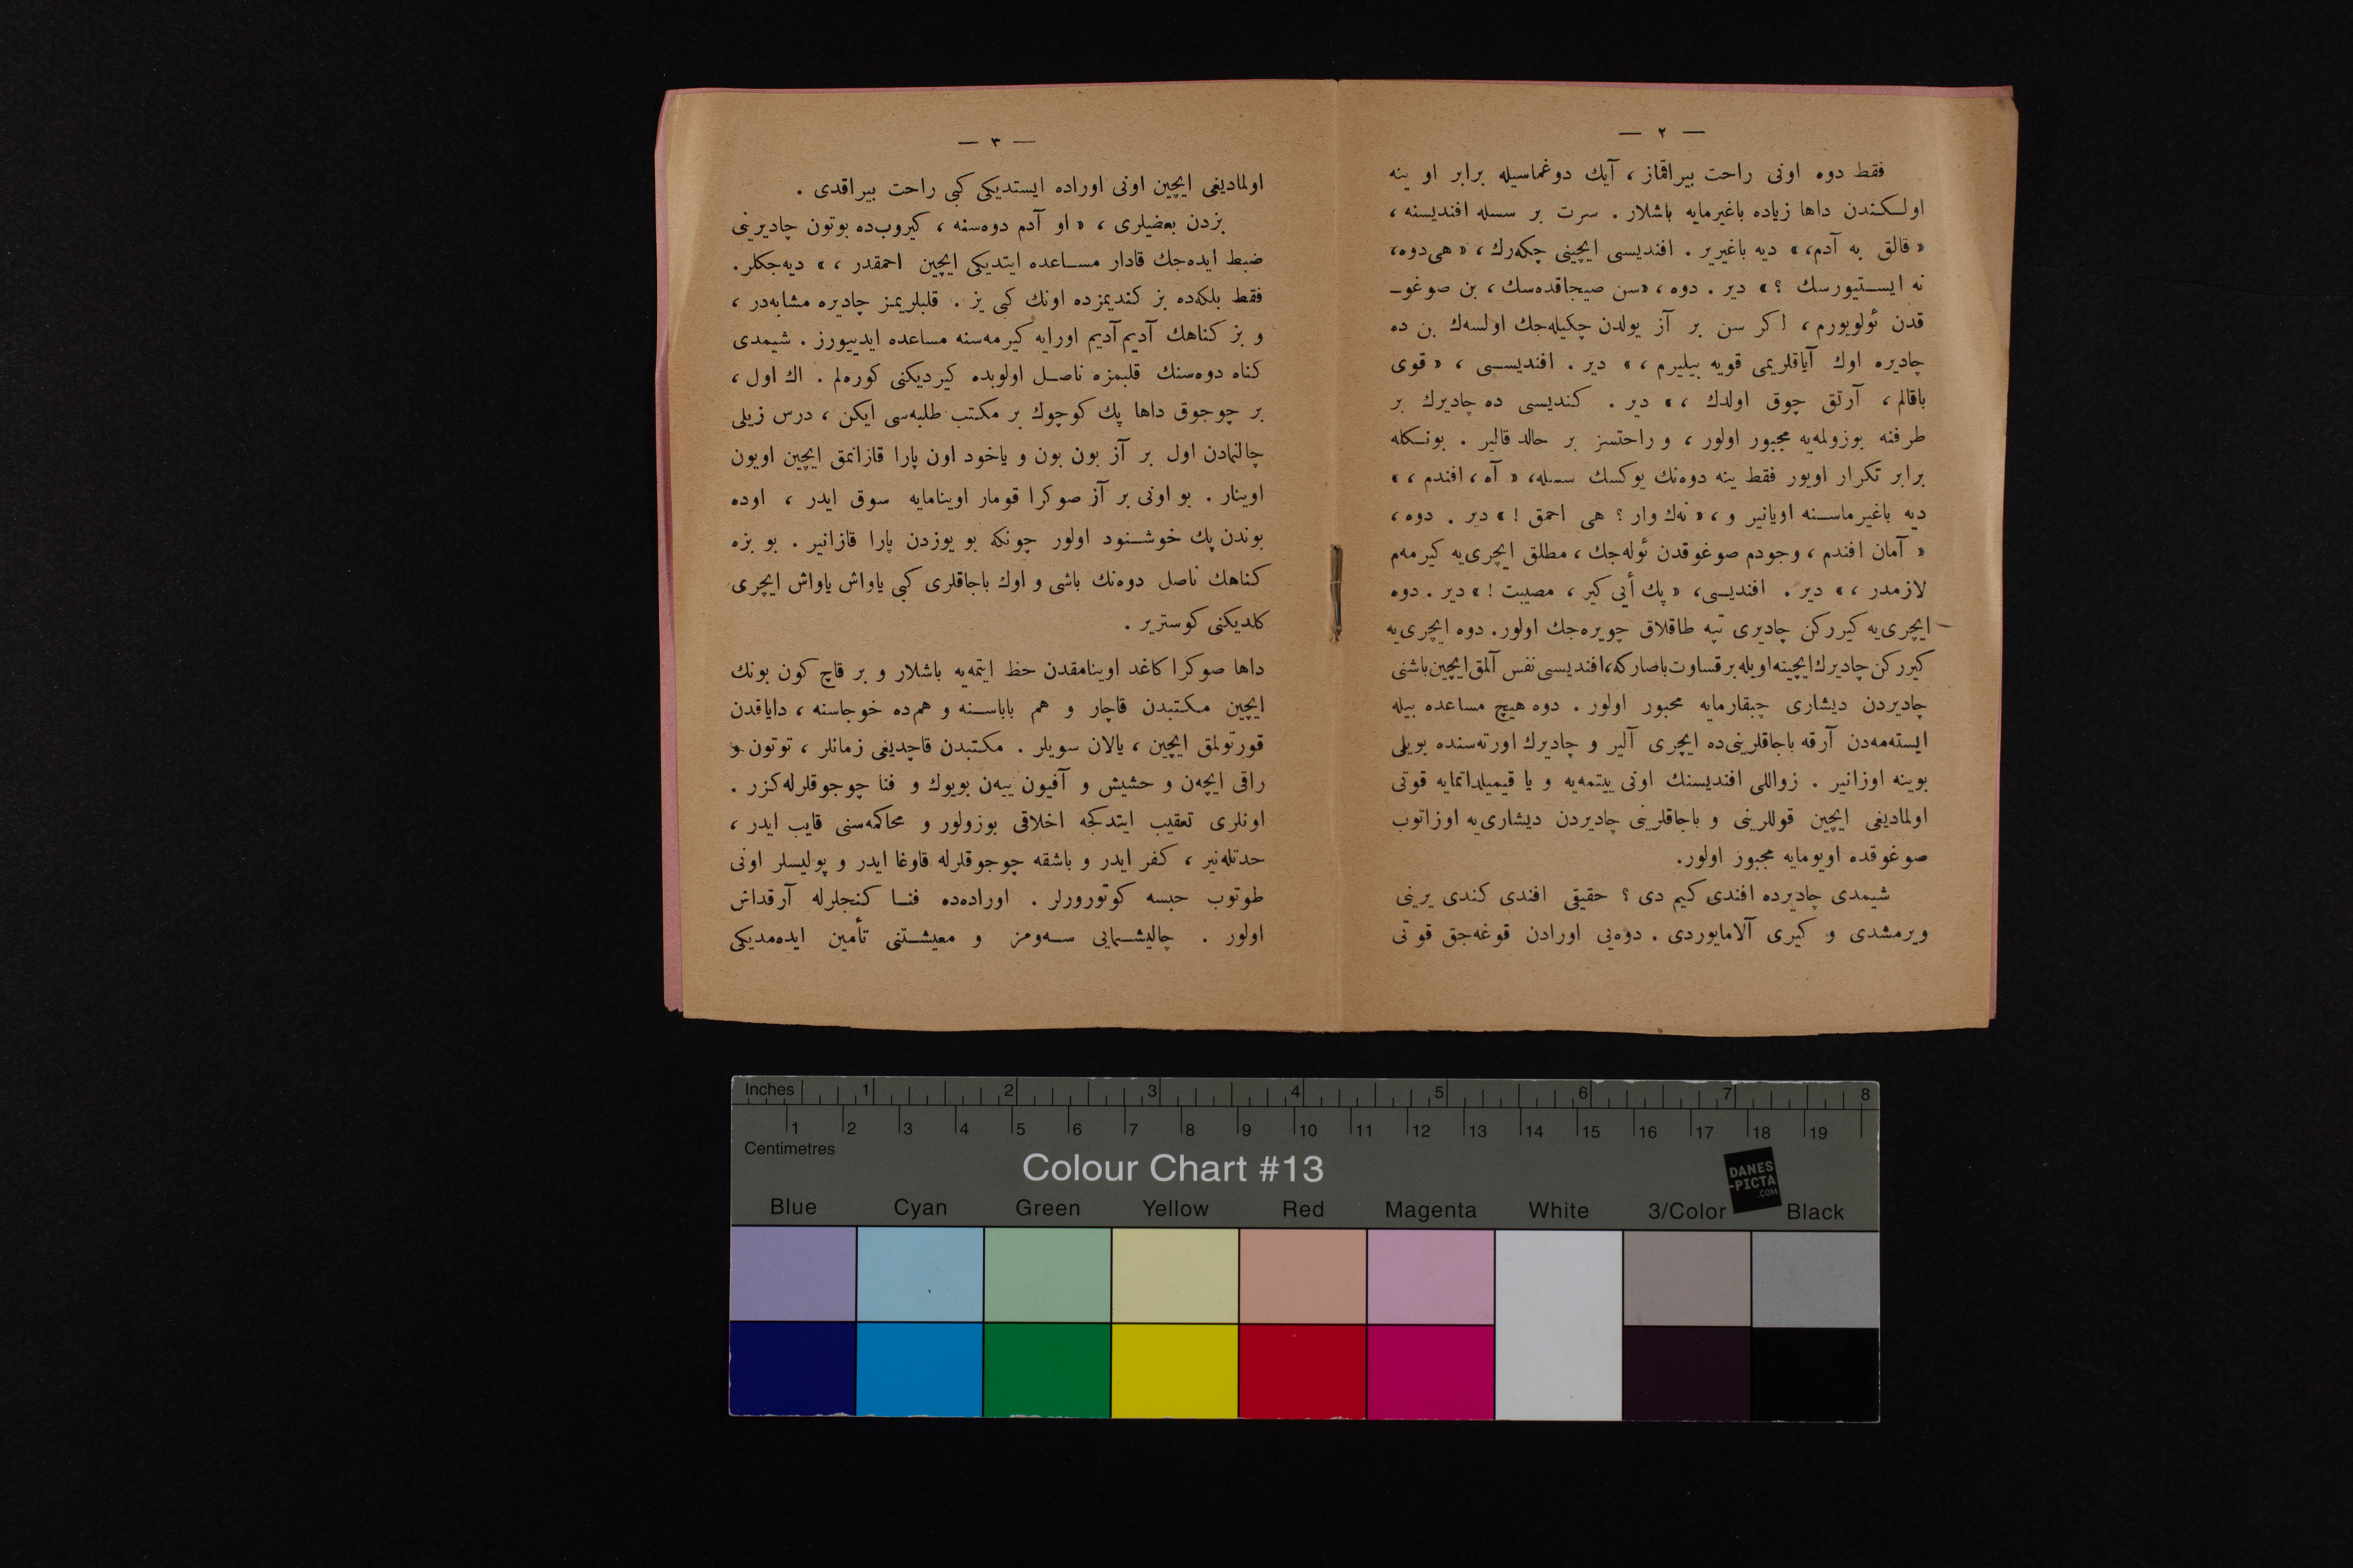 — ٢ —
فقط دوه اونی راحت بیراقماز ، آیك دوغماسیله برابر او ینه
اولـكـندن داها زیاده باغیرمایه باشلار . سرت بر سسله افندیسنه ،
« قالق به آدم، » دیه باغیریر . افندیسی ایچینی چكه‌رك ، « هی‌دوه،
نه ایســتیورسك ؟ » دیر . دوه ، «سن صیجاقده‌سك ، بن صوغوـ
قدن ئولویورم ، اكر سن بر آز یولدن چكیله‌جك اولسه‌ك بن ده
چادیره اوك آیاقلریمی قویه بیلیرم ، » دیر . افندیســی ، « قوی
باقالم ، آرتق چوق اولدك ، » دیر . كندیسی ده چادیرك بر
طرفنه بوزولمه‌یه مجبور اولور ، و راحتسز بر حالد قالیر . بونـكله
برابر تكرار اویور فقط ینه دوه‌نك یوكسك سـسله، « آه ، افندم ، »
دیه باغیرماســنه اویانیر و ، « نه‌ك وار ؟ هی احمق ! » دیر . دوه ،
« آمان افندم ، وجودم صوغوقدن ئوله‌جك ، مطلق ایچری‌یه كیرمه‌م
لازمدر ، » دیر . افندیـسی، « پك أیی كیر ، مصیبت ! » دیر . دوه
ایچری‌یه كیرركن چادیری تپه طاقلاق چویره‌جك اولور. دوه ایچری‌یه
كیرركن چادیرك ایچینه اویله بر قساوت باصاركه، افندیسی نفس آلمق ایچین باشنی
چادیردن دیشاری چیقارمایه مجبور اولور . دوه هیچ مساعده بیله
ایسته‌مه‌دن آرقه باجاقلرینی‌ده ایچری آلیر و چادیرك اورته‌سنده بویلی
بوینه اوزانیر . زواللی افندیسنك اونی ییتمه‌یه و یا قیمیلداتمایه قوتی
اولمادیغی ایچین قوللرینی و باجاقلرینی چادیردن دیشاری‌یه اوزاتوب
صوغوقده اویومایه مجبوز اولور.
شیمدی چادیرده افندی كیم دی ؟ حقیقی افندی كندی یرینی
ویرمشدی و كیری آلامایوردی . دوه‌یی اورادن قوغه‌جق قوتی
— ٣ —
اولمادیغی ایچین اونی اوراده ایستدیكی كبی راحت بیراقدی .
بزدن بعضیلری ، « او آدم دوه‌سنه ، كیروب‌ده بوتون چادیرینی
ضبط ایده‌جك قادار مسـاعده ایتدیكی ایچین احمقدر ، » دیه‌جكلر.
فقط بلكه‌ده بز كندیمزده اونك كبی یز . قلبلریمز چادیره مشابه‌در ،
و بز كناهك آدیم آدیم اورایه كیرمه‌سنه مساعده ایدییورز . شیمدی
كناه دوه‌سنك قلبمزه ناصـل اولوبده كیردیكنی كوره‌لم . اك اول ،
بر چوجوق داها پك كوچوك بر مكتب طلبه‌سی ایكن ، درس زیلی
چالنمادن اول بر آز بون بون و یاخود اون پارا قازانمق ایچین اویون
اوینار . بو اونی بر آز صوكرا قومار اوینامایه سوق ایدر ، اوده
بوندن پك خوشـنود اولور چونكه بو یوزدن پارا قازانیر . بو بزه
كناهك ناصل دوه‌نك باشی و اوك باجاقلری كبی یاواش یاواش ایچری
كلدیكنی كوستریر .
داها صوكرا كاغد اوینامقدن حظ ایتمه‌یه باشلار و بر قاچ كون بونك
ایچین مـكتبدن قاچار و هم باباسـنه و هم‌ده خوجاسنه ، دایاقدن
قورتولمق ایچین ، یالان سویلر . مكـتبدن قاچدیغی زمانلر ، توتون و
راقی ایچه‌ن و حشیش و آفیون ییه‌ن بویوك و فنا چوجوقلرله كزر .
اونلری تعقیب ایتدكجه اخلاقی بوزولور و محاكمه‌سنی قایب ایدر ،
حدتله‌نیر ، كفر ایدر و باشقه چوجوقلرله قاوغا ایدر و پولیسلر اونی
طوتوب حبسه كوتورورلر . اوراده‌ده فنــا كنجلرله آرقداش
اولور . چالیشـمایی سـه‌ومز و معیشـتنی تأمین ایده‌مدیكی
Inches 1 2 3 4 5 6 7 8
1 2 3 4 5 6 7 8 9 10 11 12 13 14 15 16 17 18 19
Centimetres
Colour Chart #13
DANES
-PICTA
.COM
Blue Cyan Green Yellow Red Magenta White 3/Color Black